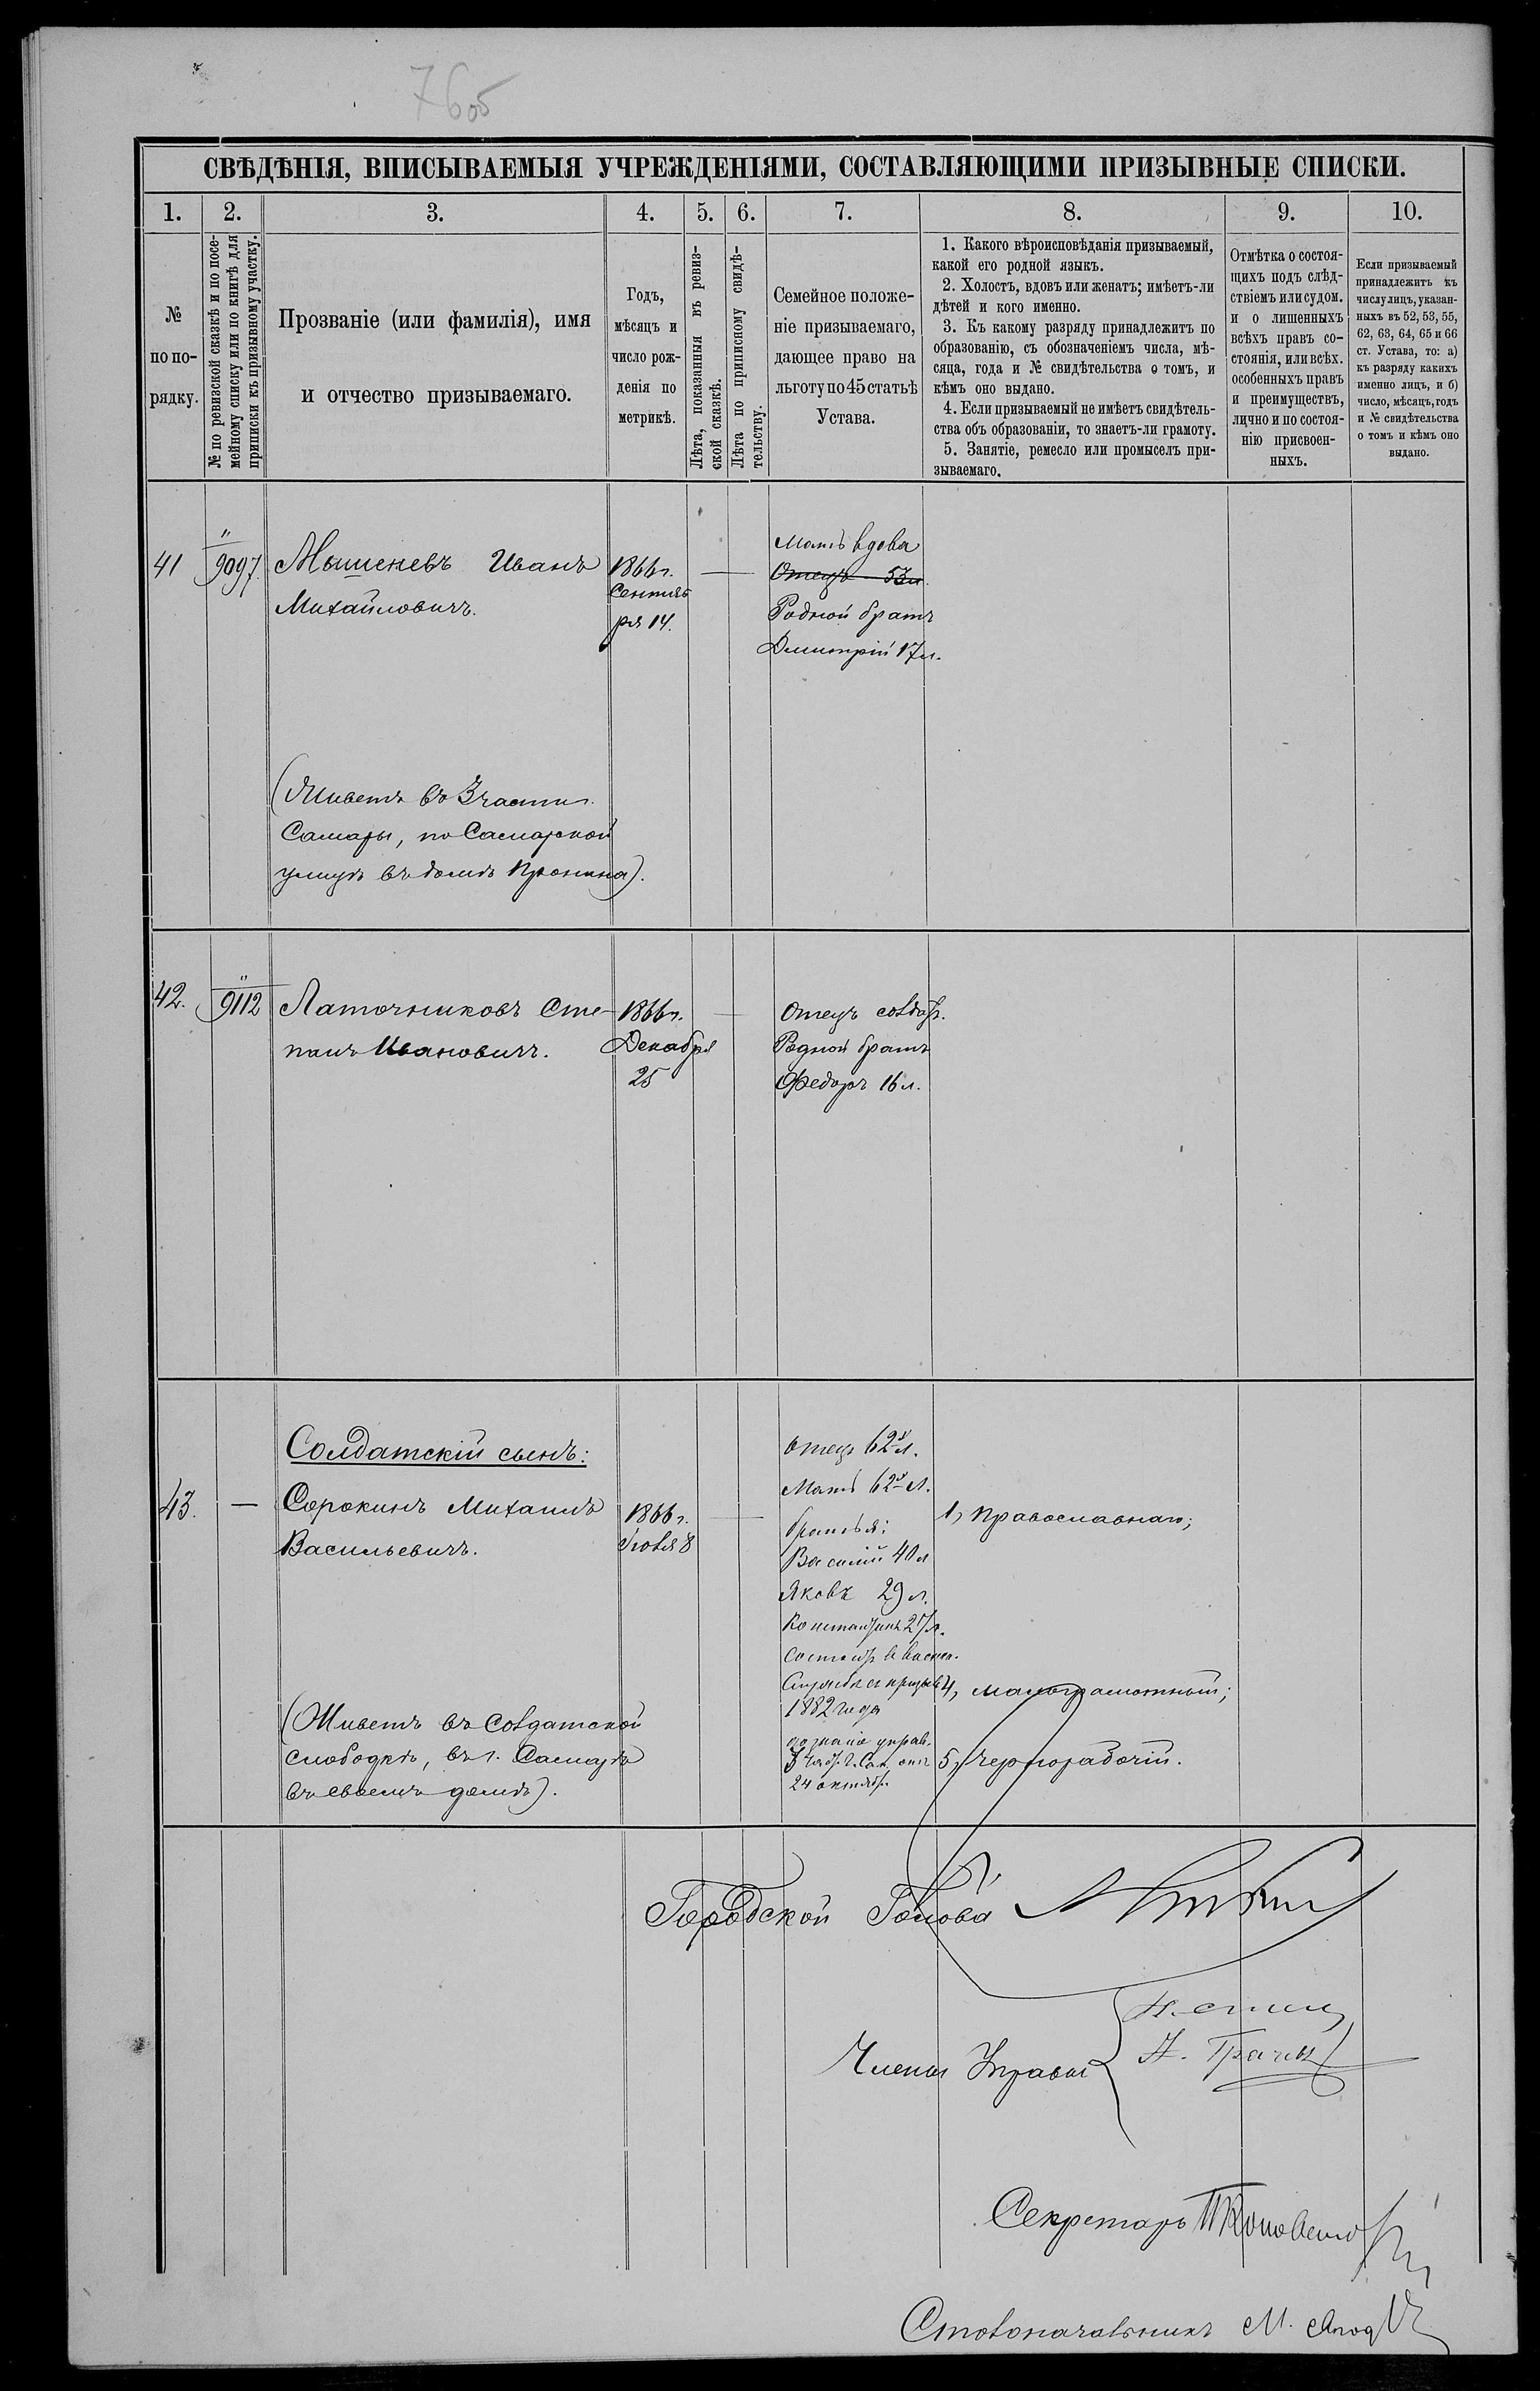 7605
СВѢДѢНІЯ, ВПИСЫВАЕМЫЯ УЧРЕЖДЕНІЯМИ, СОСТАВЛЯЮЩИМИ ПРИЗЫВНЫЕ СПИСКИ.
1. 2. 3. 4. 5. 6. 7. 8. 9. 10.
№
по по-
рядку.
№ по ревизской сказкѣ и по посе-
мейному списку или по книгѣ для
приписки къ призывному участку.
Прозваніе (или фамилія), имя
и отчество призываемаго.
Годъ,
мѣсяцъ и
число рож-
денія по
метрикѣ.
Лѣта, показанныя въ ревиз-
ской сказкѣ.
Лѣта по приписному свидѣ-
тельству.
Семейное положе-
ніе призываемаго,
дающее право на
льготу по 45 статьѣ
Устава.
1. Какого вѣроисповѣданія призываемый,
какой его родной языкъ.
2. Холостъ, вдовъ или женатъ; имѣетъ-ли
дѣтей и кого именно.
3. Къ какому разряду принадлежитъ по
образованію, съ обозначеніемъ числа, мѣ-
сяца, года и № свидѣтельства о томъ, и
кѣмъ оно выдано.
4. Если призываемый не имѣетъ свидѣтель-
ства объ образованіи, то знаетъ-ли грамоту.
5. Занятіе, ремесло или промыселъ при-
зываемаго.
Отмѣтка о состоя-
щихъ подъ слѣд-
ствіемъ или судом.
и о лишенныхъ
всѣхъ правъ со-
стоянія, или всѣх.
особенныхъ правъ
и преимуществъ,
лично и по состоя-
нію присвоен-
ныхъ.
Если призываемый
принадлежитъ къ
числу лицъ, указан-
ныхъ въ 52, 53, 55,
62, 63, 64, 65 и 66
ст. Устава, то: а)
къ разряду какихъ
именно лицъ, и б)
число, мѣсяцъ, годъ
и № свидѣтельства
о томъ и кѣмъ оно
выдано.
41
"
9097.
Мышеневъ Иванъ
Михайловичъ.
1866 г.
Сентяб
ря 14.
Мать вдова
Отецъ 53 л.
Родной братъ
Дмитрій 17 л.
(Живетъ въ 3 части
Самары, по Самарской
улицѣ въ домѣ Пронина).
42.
"
9112
Латочниковъ Сте-
панъ Ивановичъ.
1866 г.
Декабря
25
Отецъ солдат.
Родной братъ
Федоръ 16 л.
Солдатскій сынъ:
43.
—
Сорокинъ Михаилъ
Васильевичъ.
1866 г.
Ноября 8
отецъ 62 л.
Мать 62 л.
братья:
Василій 40 л
Яковъ 29 л.
Константинъ 27 л.
1882 года
24 октября
1, Православнаго;
4, малограмотный;
5, Чернорабочій.
(Живетъ въ Солдатской
слободкѣ, въ г. Самарѣ
въ своемъ домѣ).
Городской Голова
Члены Управы
Секретарь
Столоначальникъ М.